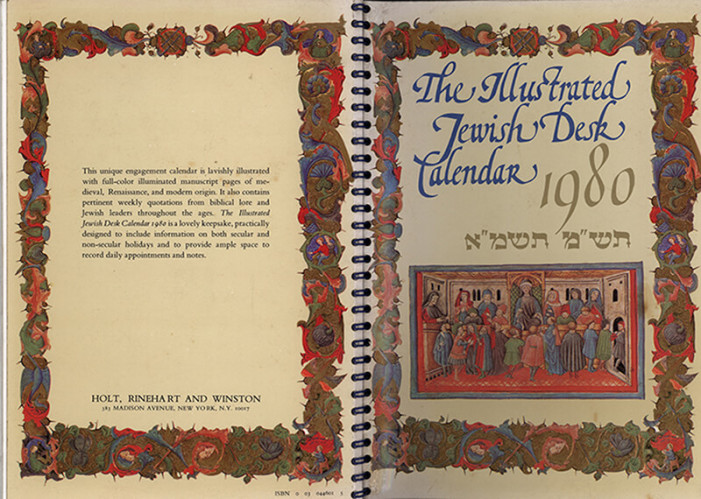 This unique engagement calendar is lavishly illustrated
with full-color illuminated manuscript pages of me-
dieval, Renaissance, and modern origin. It also contains
pertinent weekly quotations from biblical lore and
Jewish leaders throughout the ages. The Illustrated
Jewish Desk Calendar 1980 is a lovely keepsake, practically
designed to include information on both secular and
non-secular holidays and to provide ample space to
record daily appointments and notes.
HOLT, RINEHART AND WINSTON
383 MADISON AVENUE, NEW YORK, N.Y. 10017
ISBN 0 03 044861 1
The Illustrated
Jewish Desk
Calendar
1980
תש"מ תשמ"א